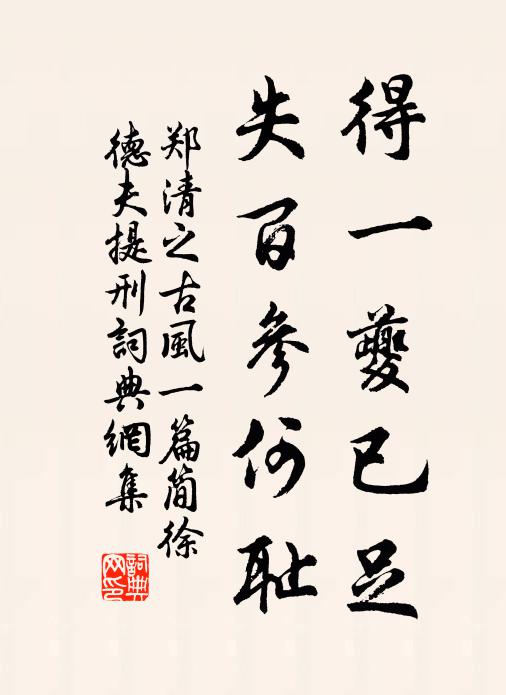 得一夔已足
失百參何耻
郑清之古風一篇简徐
德夫提刑詞典網集
詞典網印